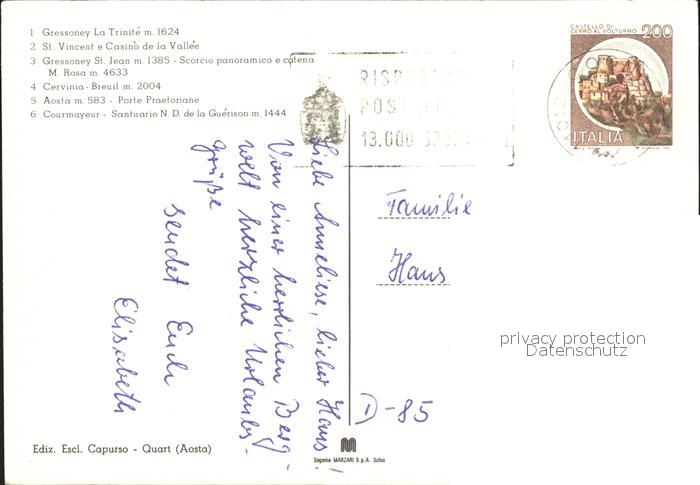 1 Gressoney La Trinité m. 1624
2 St. Vincent e Casinò de la Vallée
3 Gressoney St. Jean m. 1385 - Scorcio panoramico e catena
M. Rosa m. 4633
4 Cervinia - Breuil m. 2004
5 Aosta m. 583 - Porte Praetoriane
6 Courmayeur - Santuario N. D. de la Guérison m. 1444
CASTELLO DI
CERRO AL VOLTURNO
200
ITALIA
RISPARMIO
POSTALE
13.000
Liebe Anneliese, lieber Hans!
Von einer herrlichen Berg-
welt herzliche Urlaubs-
grüße
sendet Euch
Elisabeth
Familie
Hans
D-85
privacy protection
Datenschutz
Ediz. Escl. Capurso - Quart (Aosta)
Sagema MARZARI S.p.A. Schio